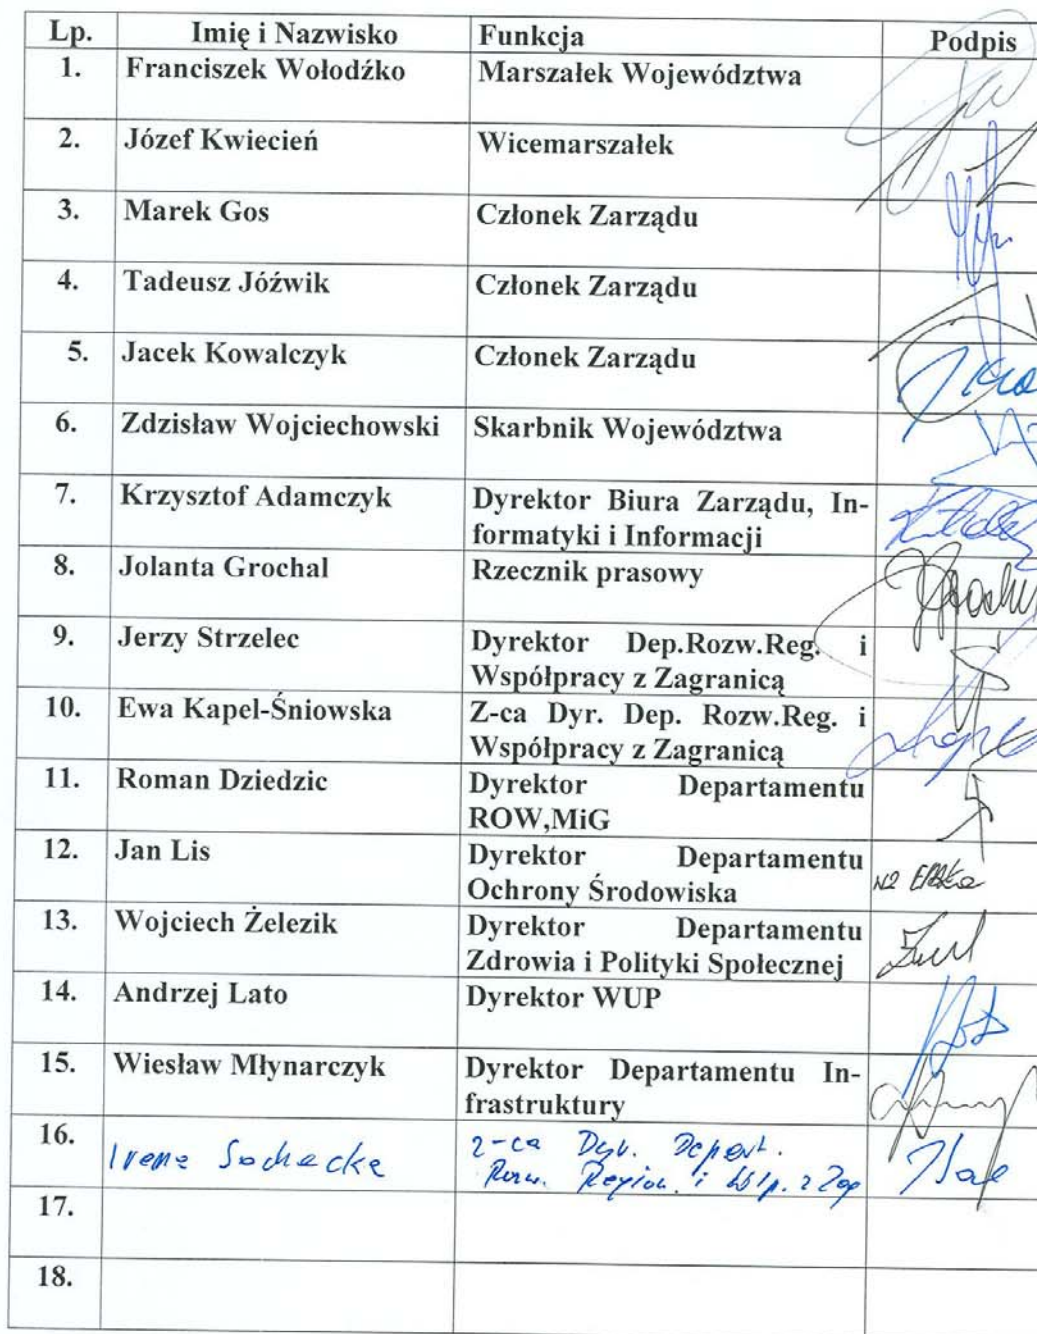 Lp. Imię i Nazwisko Funkcja Podpis
1. Franciszek Wołodźko Marszałek Województwa
2. Józef Kwiecień Wicemarszałek
3. Marek Gos Członek Zarządu
4. Tadeusz Jóźwik Członek Zarządu
5. Jacek Kowalczyk Członek Zarządu
6. Zdzisław Wojciechowski Skarbnik Województwa
7. Krzysztof Adamczyk Dyrektor Biura Zarządu, In-
formatyki i Informacji
8. Jolanta Grochal Rzecznik prasowy
9. Jerzy Strzelec Dyrektor Dep.Rozw.Reg. i
Współpracy z Zagranicą
10. Ewa Kapel-Śniowska Z-ca Dyr. Dep. Rozw.Reg. i
Współpracy z Zagranicą
11. Roman Dziedzic Dyrektor Departamentu
ROW,MiG
12. Jan Lis Dyrektor Departamentu
Ochrony Środowiska
13. Wojciech Żelezik Dyrektor Departamentu
Zdrowia i Polityki Społecznej
14. Andrzej Lato Dyrektor WUP
15. Wiesław Młynarczyk Dyrektor Departamentu In-
frastruktury
16. Irena Sochacka z-ca Dyr. Depart.
Rozw. Region. i Wsp. z Zag
17.
18.